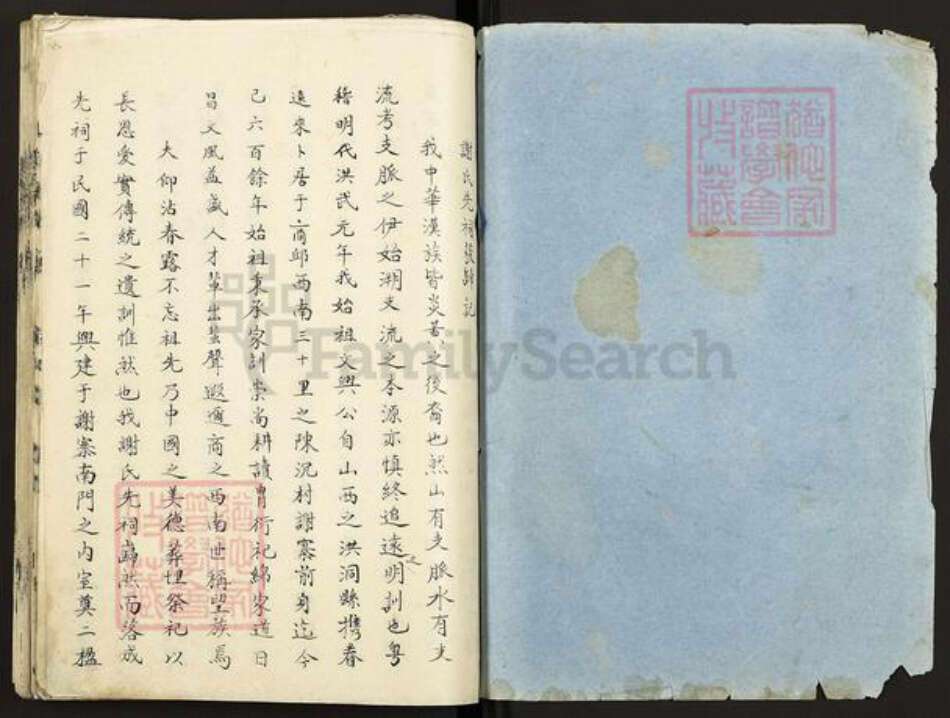 謝氏先祠 記
我中華漢族皆炎黃之後裔也然山有支脈水有支
流考支脈之伊始溯支流之本源亦慎終追遠之明訓也粵
稽明代洪武元年我始祖文興公自山西之洪洞縣携眷
遠來卜居于商邱西南三十里之陳況村謝寨前身迄今
已六百餘年始祖秉承家訓崇尚耕讀胄衍祀綿家道日
昌文風益盛人才輩出蜚聲遐邇商之西南世稱望族焉
大仰沾春露不忘祖先乃中國之美德葬埋祭祀以
長恩愛實傳統之遺訓惟然也我謝氏先祠巋然而落成
先祠于民國二十一年興建于謝寨南門之內室奠二楹
譜學會
收藏
FamilySearch